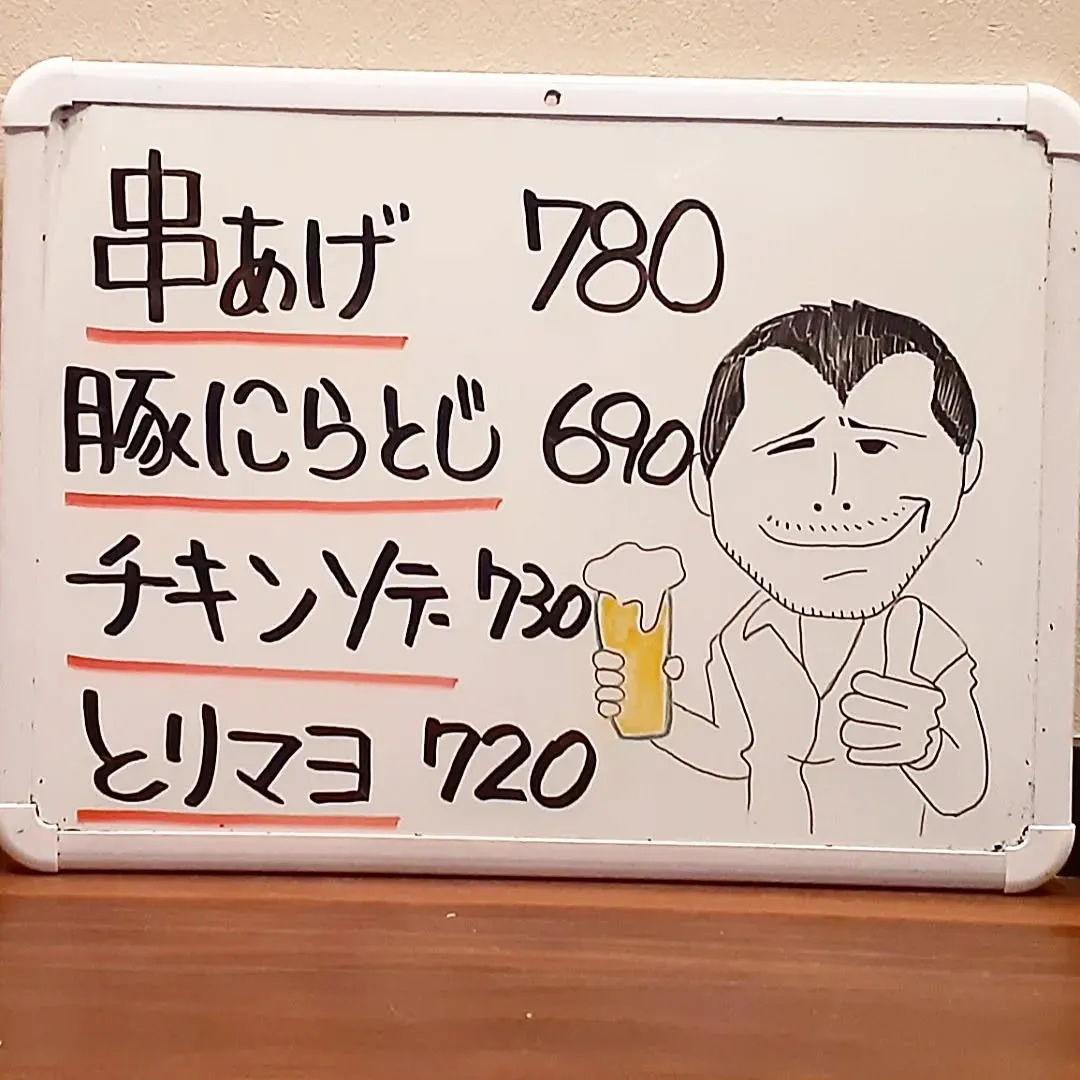 串あげ 780
豚にらとじ 690
チキンソテー 730
とりマヨ 720